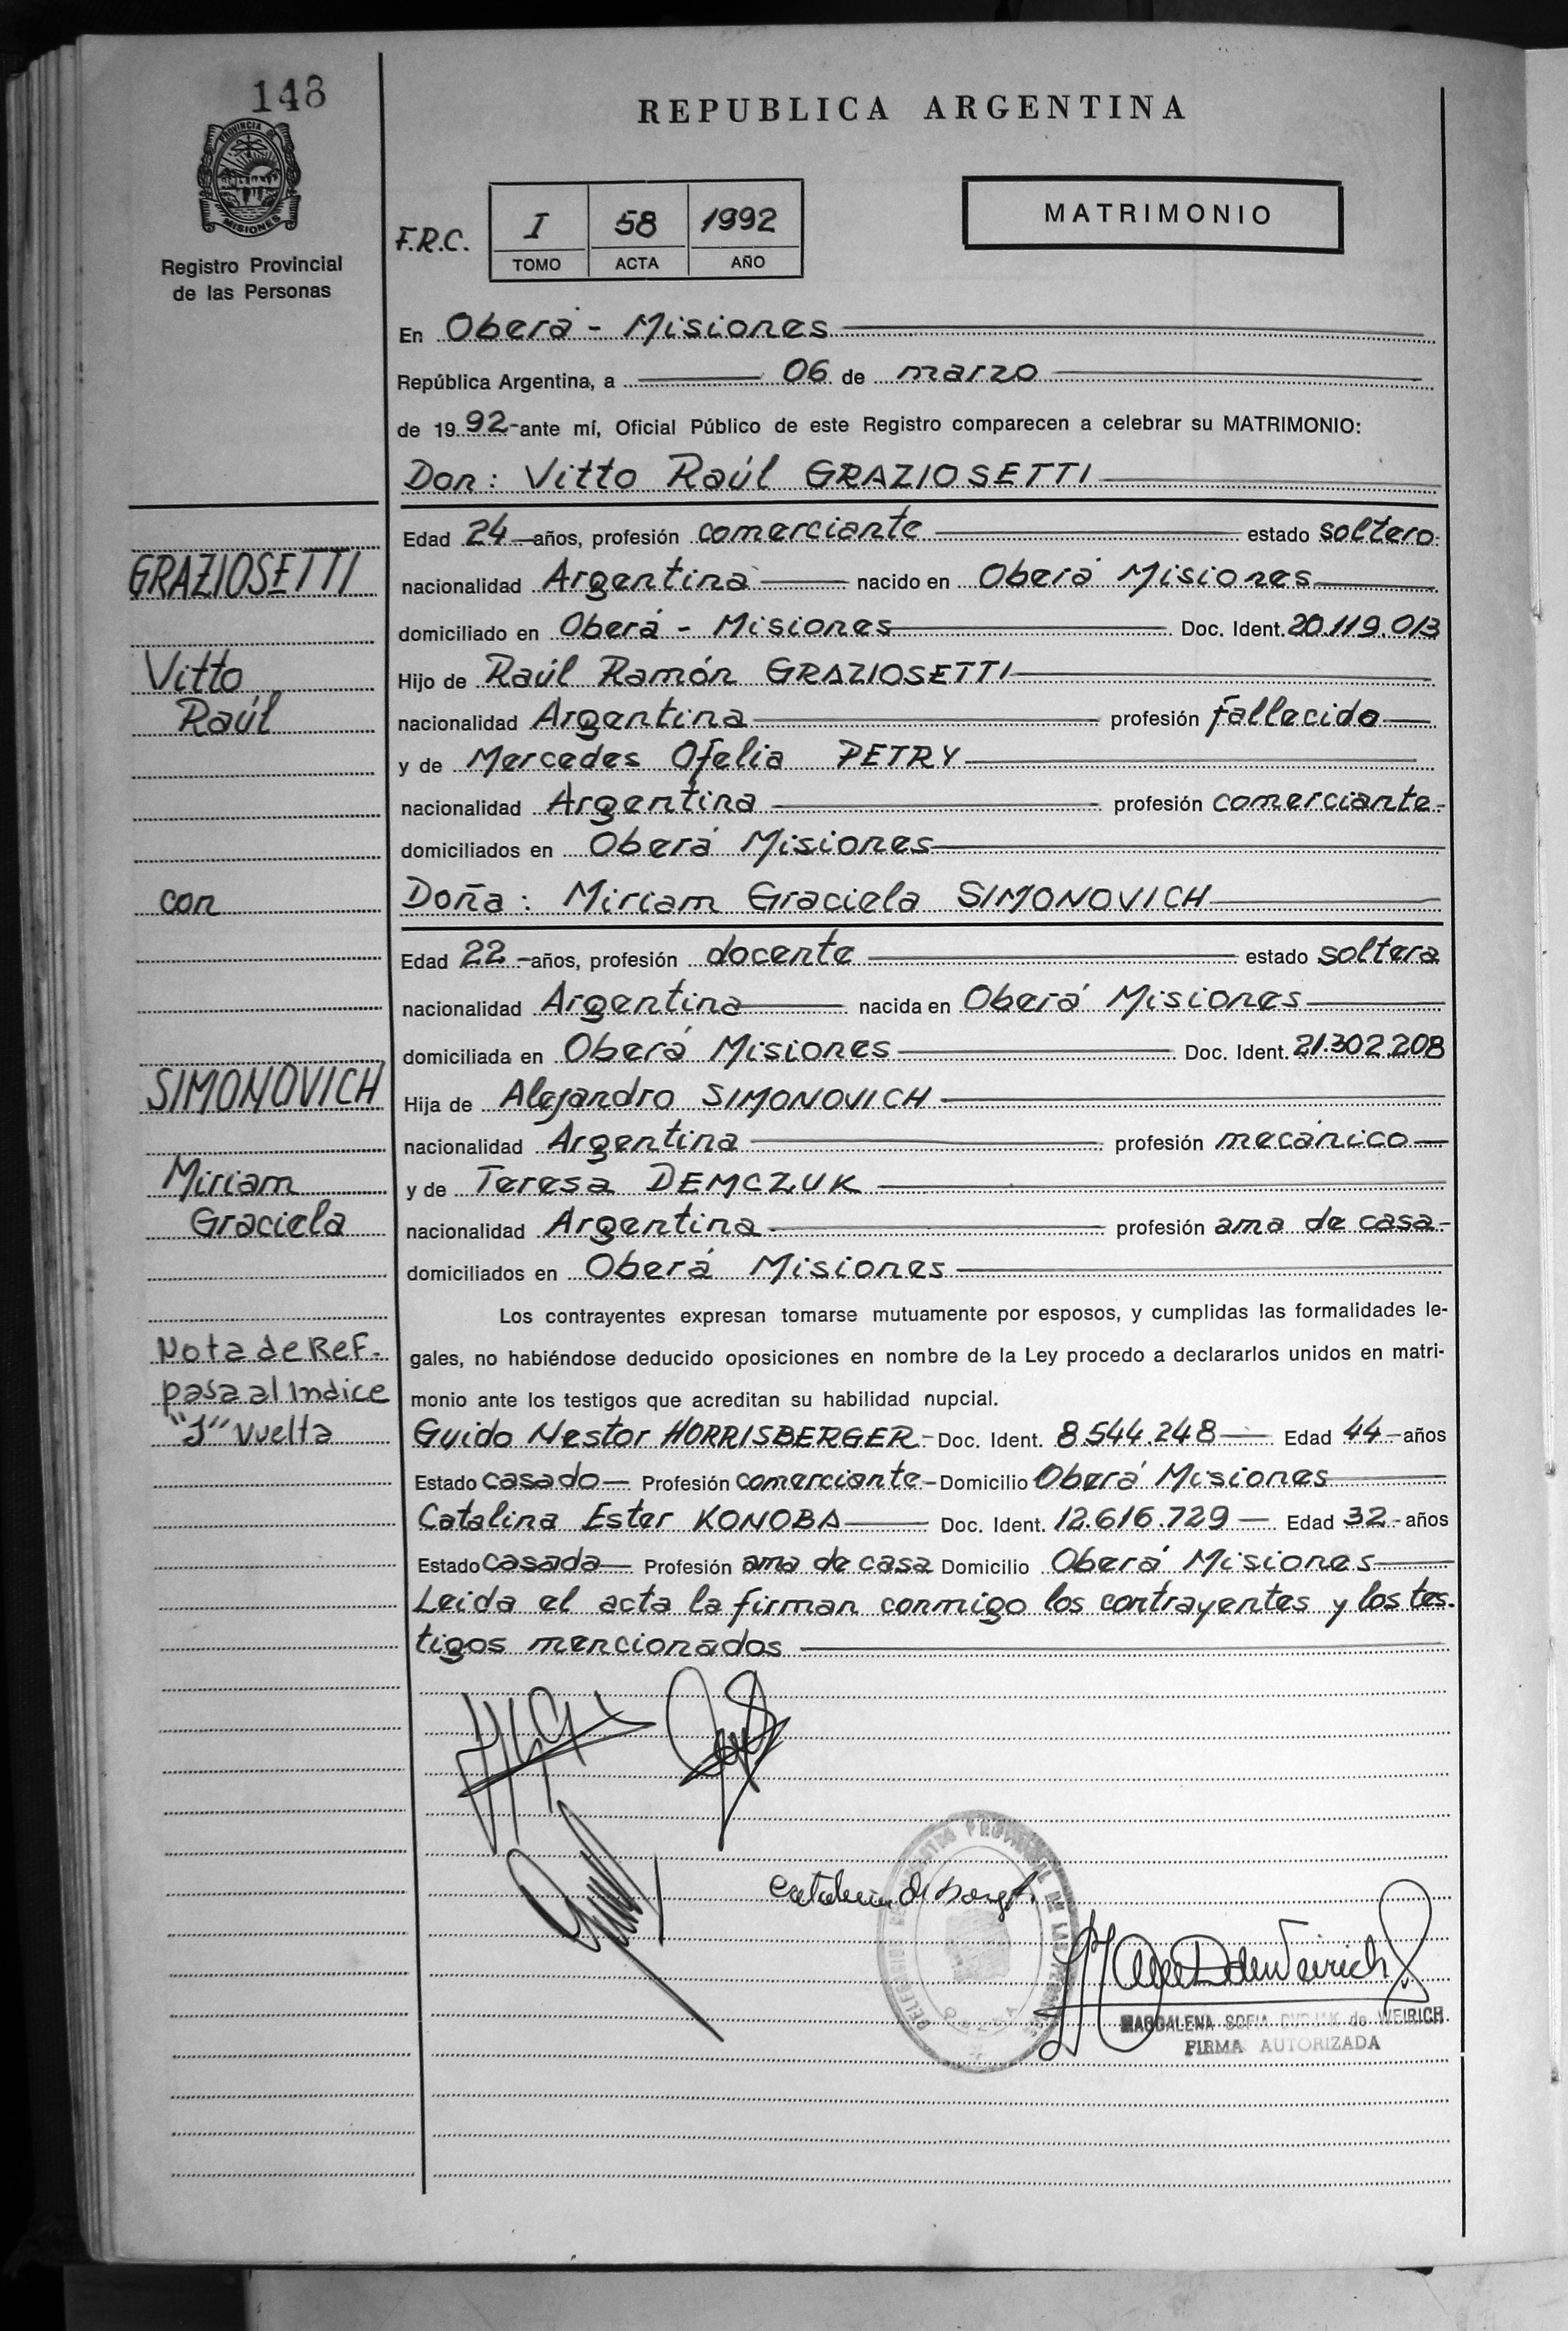 148
PROVINCIA DE
MISIONES
Registro Provincial
de las Personas
REPUBLICA ARGENTINA
F.R.C.
I 58 1992
TOMO ACTA AÑO
MATRIMONIO
En Oberá - Misiones
República Argentina, a 06 de marzo
de 1992 - ante mí, Oficial Público de este Registro comparecen a celebrar su MATRIMONIO:
Don: Vitto Raúl GRAZIOSETTI
Edad 24 - años, profesión comerciante estado soltero
nacionalidad Argentina nacido en Oberá Misiones
domiciliado en Oberá - Misiones Doc. Ident. 20.119.013
Hijo de Raúl Ramón GRAZIOSETTI
nacionalidad Argentina profesión fallecido
y de Mercedes Ofelia PETRY
nacionalidad Argentina profesión comerciante -
domiciliados en Oberá Misiones
Doña: Miriam Graciela SIMONOVICH
Edad 22 - años, profesión docente estado soltera
nacionalidad Argentina nacida en Oberá Misiones
domiciliada en Oberá Misiones Doc. Ident. 21.302.208
Hija de Alejandro SIMONOVICH
nacionalidad Argentina profesión mecánico
y de Teresa DEMCZUK
nacionalidad Argentina profesión ama de casa -
domiciliados en Oberá Misiones
Los contrayentes expresan tomarse mutuamente por esposos, y cumplidas las formalidades le-
gales, no habiéndose deducido oposiciones en nombre de la Ley procedo a declararlos unidos en matri-
monio ante los testigos que acreditan su habilidad nupcial.
Guido Nestor HORRISBERGER - Doc. Ident. 8.544.248 Edad 44 - años
Estado casado Profesión comerciante - Domicilio Oberá Misiones
Catalina Ester KONOBA Doc. Ident. 12.616.729 Edad 32 - años
Estado casada Profesión ama de casa Domicilio Oberá Misiones
Leida el acta la firman conmigo los contrayentes y los tes-
tigos mencionados
GRAZIOSETTI
Vitto
Raúl
con
SIMONOVICH
Miriam
Graciela
Nota de Ref -
pasa al Indice
"J" vuelta
MAGDALENA SOFIA de WEIRICH
FIRMA AUTORIZADA